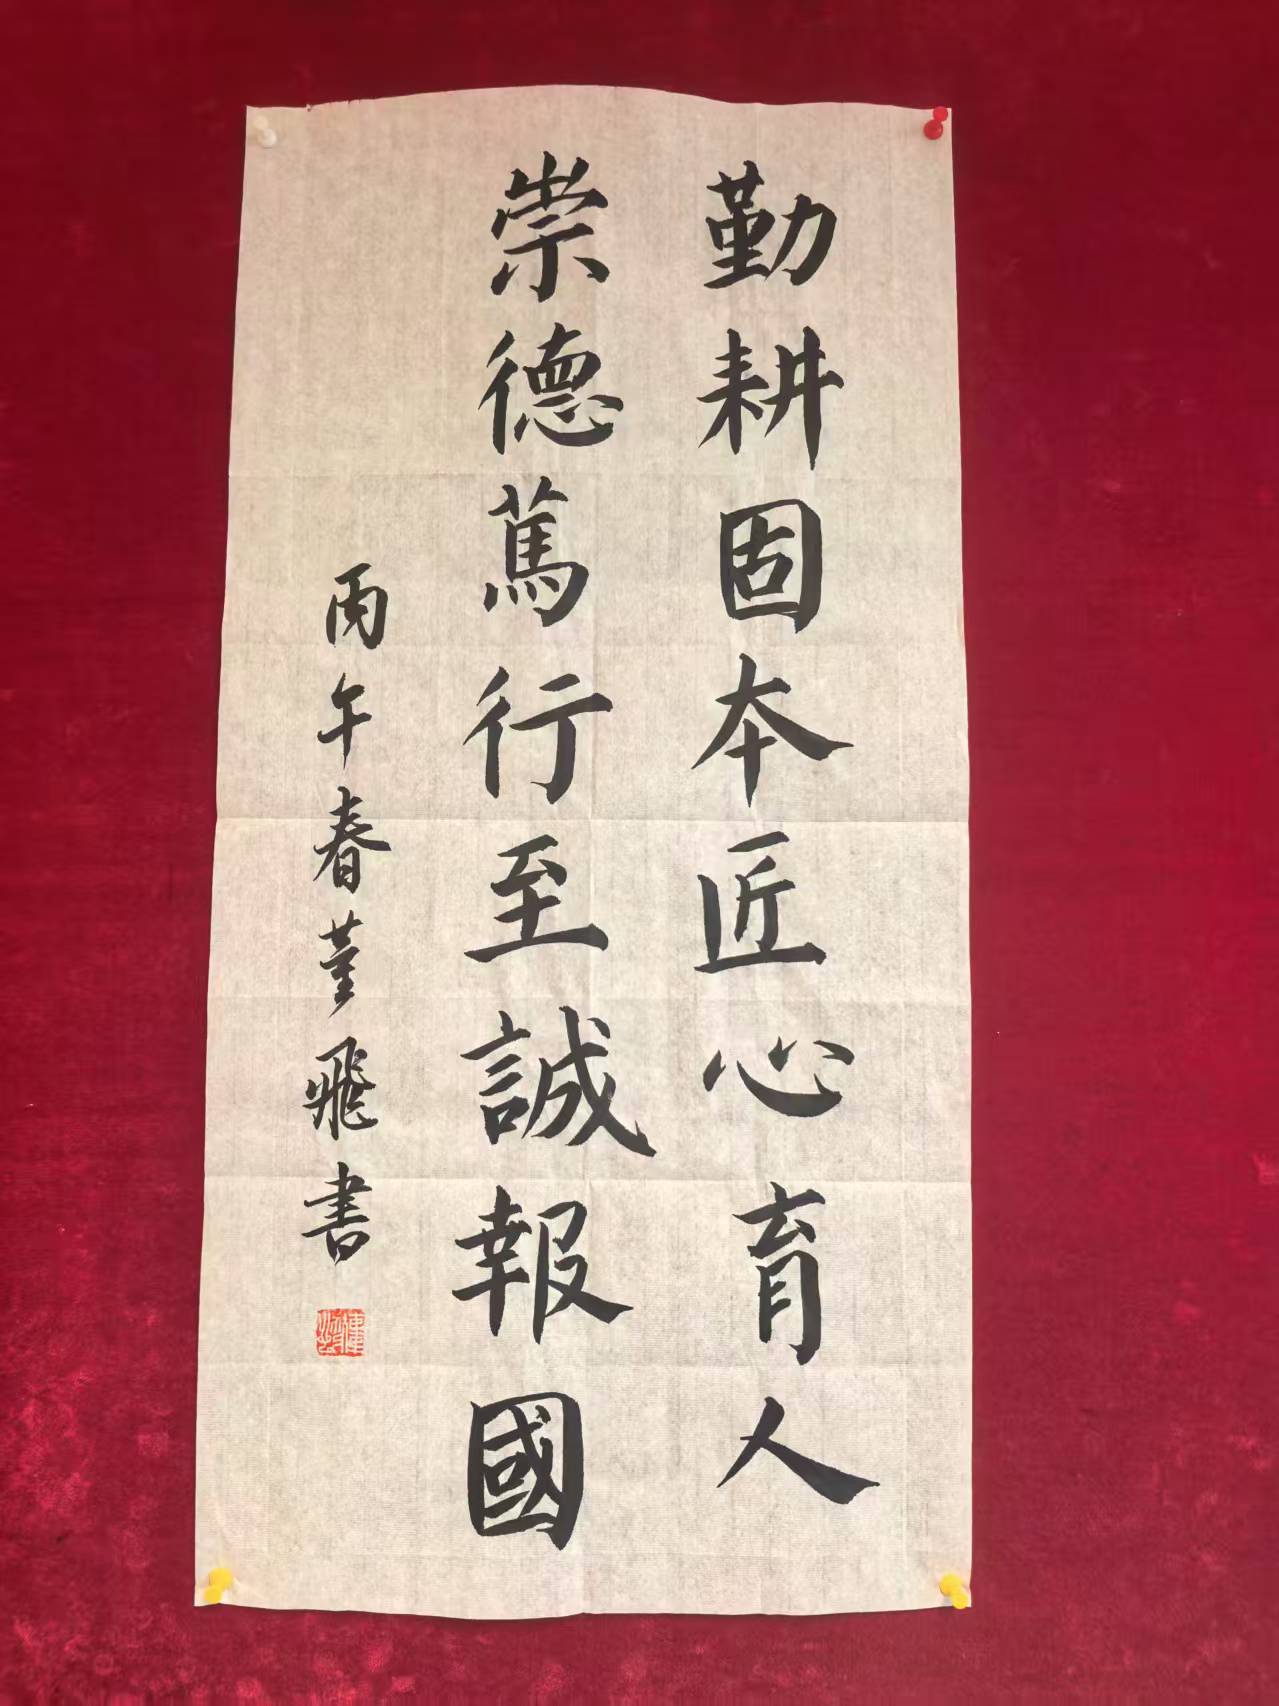 勤耕固本匠心育人
崇德篤行至誠報國
丙午春董飛書